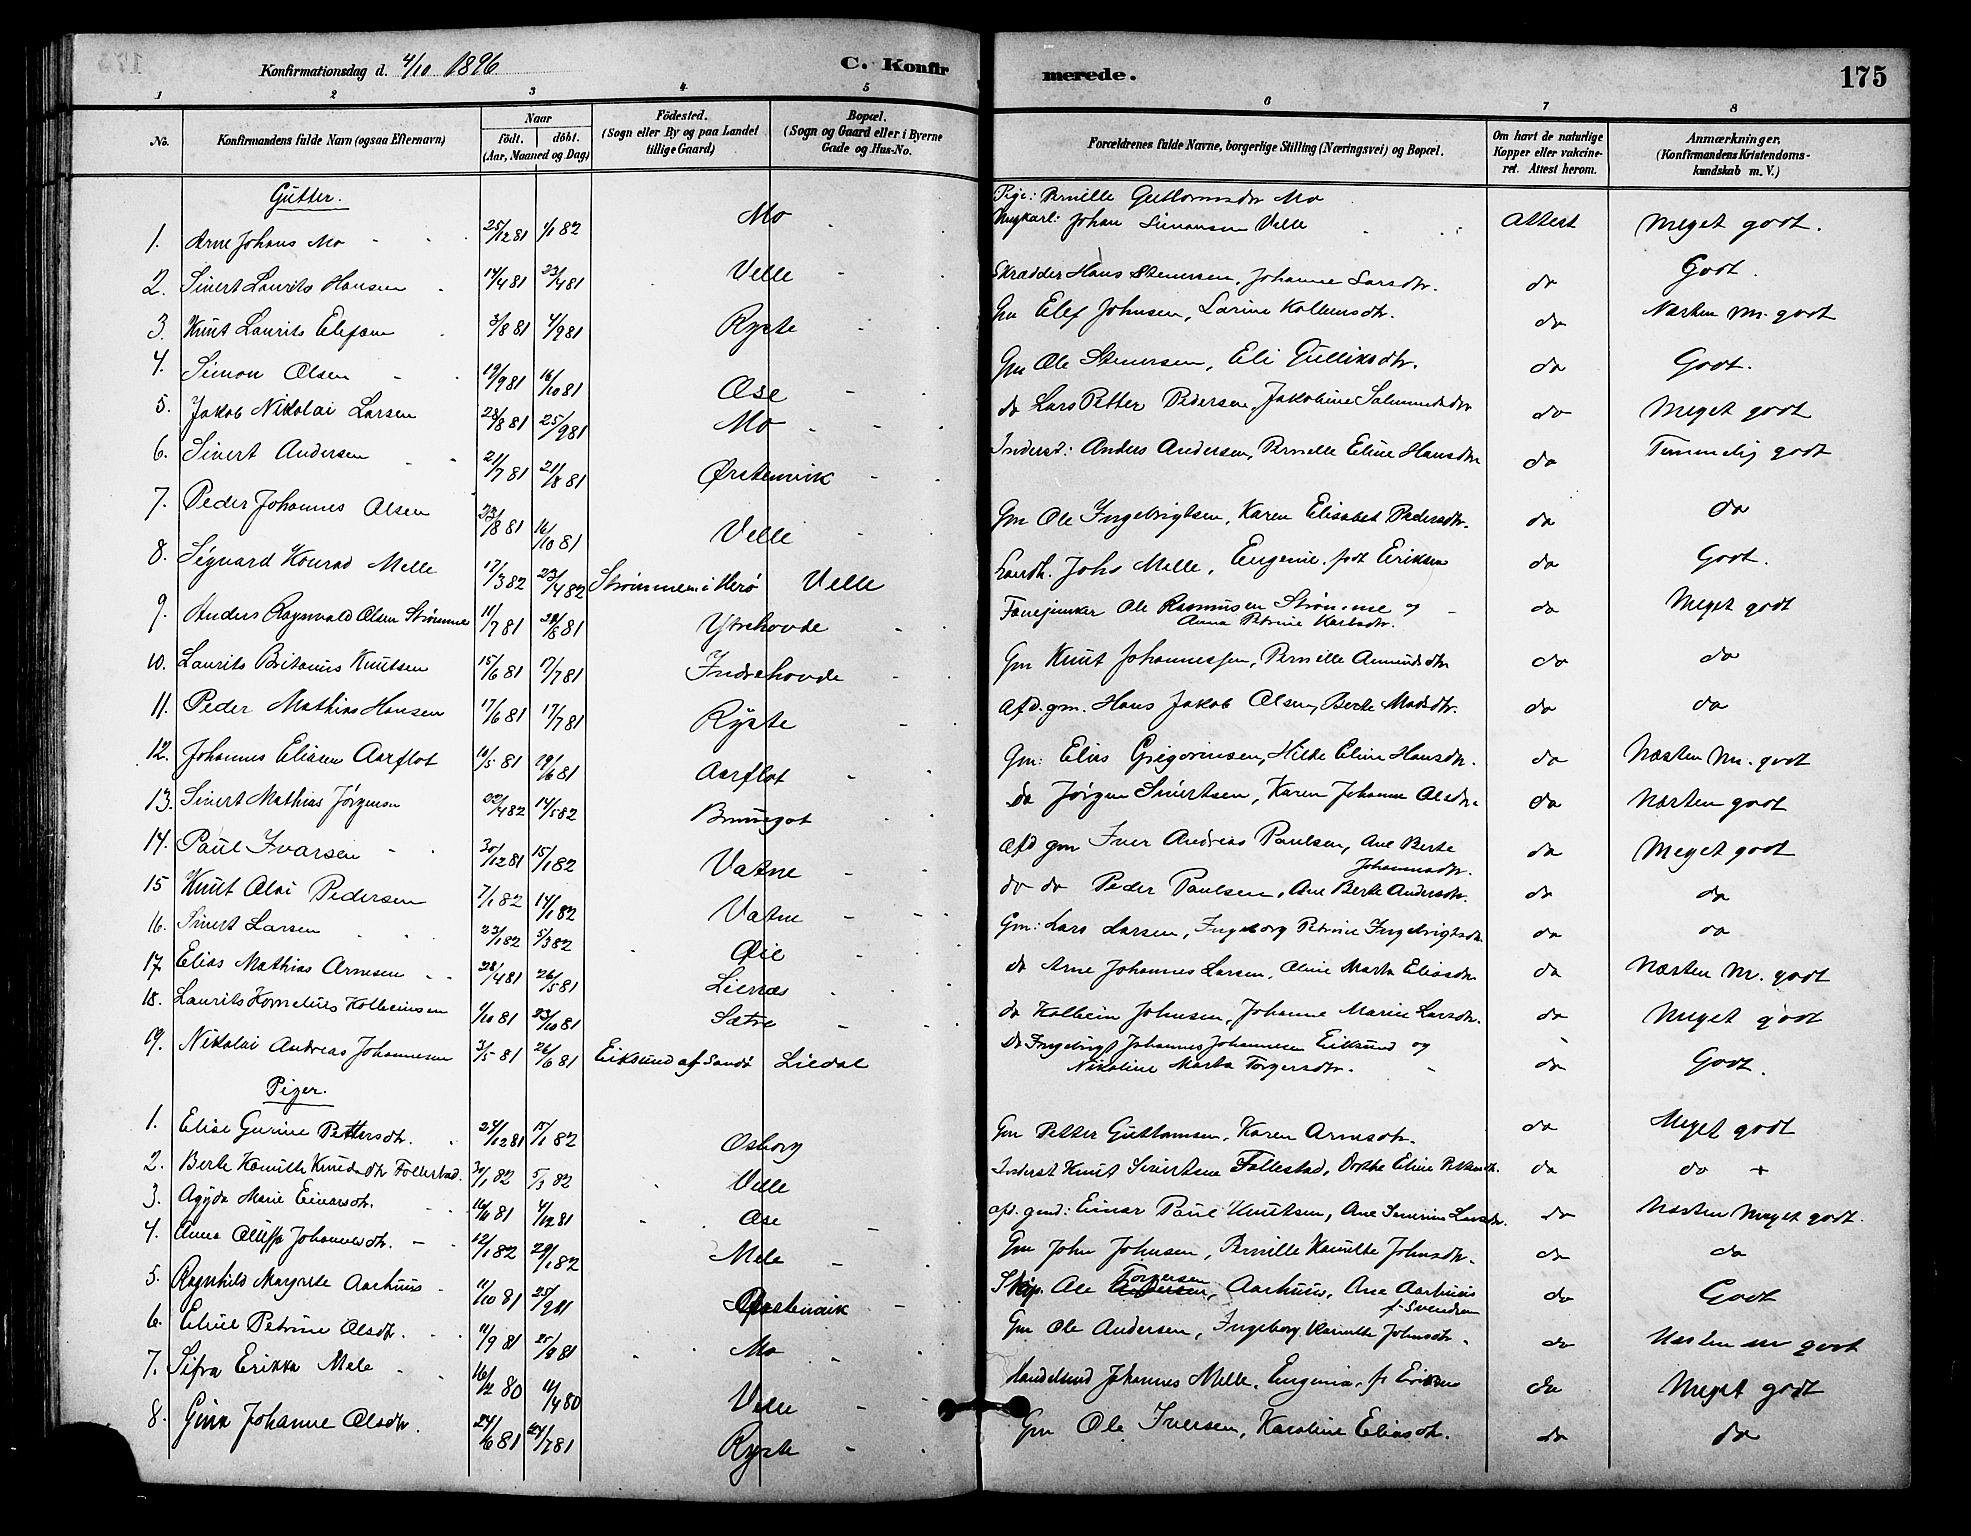 Konfirmationsdag d. 4/10 1896
C. Konfirmerede.
175
1 2 3 4 5 6 7 8
No. | Konfirmandens fulde Navn (ogsaa Efternavn) | Naar født. døbt. (Aar, Maaned og Dag) | Fødested. (Sogn eller By og paa Landet tillige Gaard) | Bopæl. (Sogn og Gaard eller i Byerne Gade og Hus-No. | Forældrenes fulde Navne, borgerlige Stilling (Næringsvei) og Bopæl. | Om havt de naturlige Kopper eller vakcineret. Attest herom. | Anmærkninger. (Konfirmandens Kristendomskundskab m. V.)
Gutter.
Pige: Pernille Guttormsdtr Mo
1. Arne Johans Mo 25/12 81 1/1 82 Mo Ungkarl: Johan Simonsen Velle Attest Meget godt.
2. Sivert Laurits Hansen 14/4 81 23/4 81 Velle Skrædder Hans Stenersen, Johanne Larsdtr. do Godt.
3. Knut Laurits Elefsen 3/8 81 4/9 81 Ryste Gm Elef Johnsen, Larine Kolbensdtr. do Næsten m. godt
4. Simon Olsen 19/9 81 16/10 81 Ose Gm Ole Stenersen, Eli Gulliksdtr. do Godt.
5. Jakob Nikolai Larsen 28/8 81 25/9 81 Mo do Lars Petter Pedersen, Jakobine Salmundsdtr do Meget godt
6. Sivert Andersen 21/7 81 21/8 81 Ørstenvik Inderst: Anders Andersen, Pernille Eline Hansdtr do Temmelig godt
7. Peder Johannes Olsen 23/8 81 16/10 81 Velle Gm Ole Ingebrigtsen, Karen Elisabet Pedersdtr. do do
8. Sigvard Konrad Melle 17/3 82 23/4 82 Strømmen i Herø Velle Landh. Johs Melle, Eugenie. født Eriksen do Godt.
9. Anders Ragnvald Olsen Strømme 11/7 81 28/8 81 Ytrehovde Fanejunker Ole Rasmusen Strømme og do Meget godt
Anna Petrine Karlsdtr.
10. Laurits Britanus Knutsen 15/6 81 17/7 81 Indrehovde Gm Knut Johannessen, Pernille Amundsdtr do do
11. Peder Mathias Hansen 17/6 81 17/7 81 Ryste Afd. gm. Hans Jakob Olsen, Berte Madsdtr. do do
12. Johannes Eliasen Aarflot 10/5 81 19/6 81 Aarflot Gm: Elias Grigoriusen, Hilde Eline Hansdtr. do Næsten m. godt
13. Sivert Mathias Jørgensen 22/4 82 14/5 82 Brungot do Jørgen Sivertsen, Karen Johanne Olsdtr. do Næsten godt
14. Paul Ivarsen 30/12 81 15/1 82 Vatne Afd gm Iver Andreas Paulsen, Ane Berte do Meget godt
Johannesdtr.
15 Knut Olai Pedersen 7/1 82 14/1 82 Vatne do do Peder Paulsen, Ane Berte Andersdtr. do do
16. Sivert Larsen 23/1 82 5/3 82 Øie Gm: Lars Larsen, Ingeborg Petrine Ingebrigtsdtr do do
17. Elias Mathias Arnesen 28/4 81 26/5 81 Lienæs do Arne Johannes Larsen, Oline Marta Eliasdtr do Næsten m. godt
18. Laurits Kornelius Kolbeinsen 1/10 81 23/10 81 Sætre do Kolbein Johnsen, Johanne Marie Larsdtr. do Meget godt
19. Nikolai Andreas Johannesen 3/5 81 26/6 81 Eiksund af Sandø Liedal do Ingebrigt Johannes Johannesen Eiksund og do Godt.
Nikoline Marta Torgersdtr.
Piger.
1. Elise Gurine Pettersdtr. 24/12 81 15/1 82 Osborg Gm Petter Guttormsen, Karen Arnesdtr. do Meget godt
2. Berte Kamille Knudsdtr Follestad. 30/1 82 5/3 82 Velle Inderst Knut Sivertsen Follestad, Dorthe Eline Pettersdtr. do do +
3. Agyda Marie Einarsdtr. 10/11 81 4/12 81 Ose afd. gmd: Einar Paul Knutsen, Ane Severine Larsdtr. do Næsten meget godt.
4. Anna Oluffa Johannesdtr. 12/1 82 29/1 82 Mele Gm John Johnsen, Pernille Kamilte Johnsdtr. do do
5. Ragnhild Margrete Aarhuus 11/10 81 25/9 81 Ørstenvik Skip. Ole Torgersen, Aarhuus, Ane Aarhuus do Godt
f. Svendsen
6. Eline Petrine Olsdtr. 11/9 81 25/9 81 Mo Gm Ole Andersen, Ingeborg Kamille Johnsdtr. do Næsten m godt
7. Sifra Erikka Mele 16/2 80 11/4 80 Velle Handelsmd Johannes Melle. Eugenie. f. Eriksen do Meget godt
8. Gina Johanne Olsdtr. 24/6 81 24/7 81 Ryste Gm Ole Iversen, Karoline Eliasdtr. do do